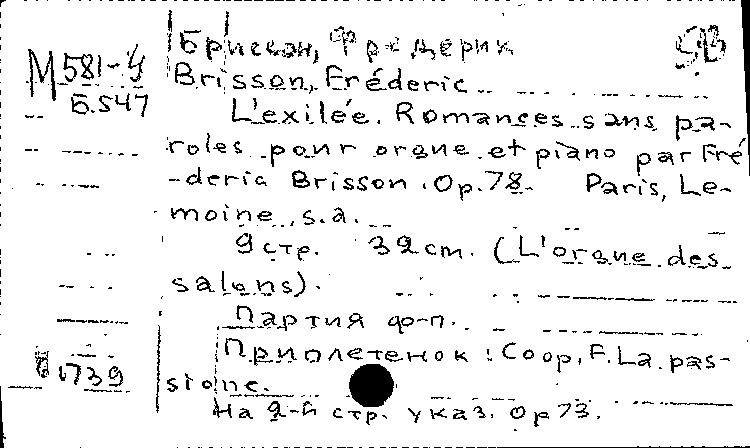 Бриссон, Фредерик
М581-4
Б.547
Brisson, Fréderic
L'exilée. Romances sans pa-
roles pour orgue et piano par Fré
-deric Brisson. Op.78. Paris, Le-
moine, s.a.
9 стр. 32 cm. (L'orgue des
salons).
Партия ф-п.
Приплетенок: Coop, F. La pas-
sione.
1739
На 2-й стр. указ. Op 73.